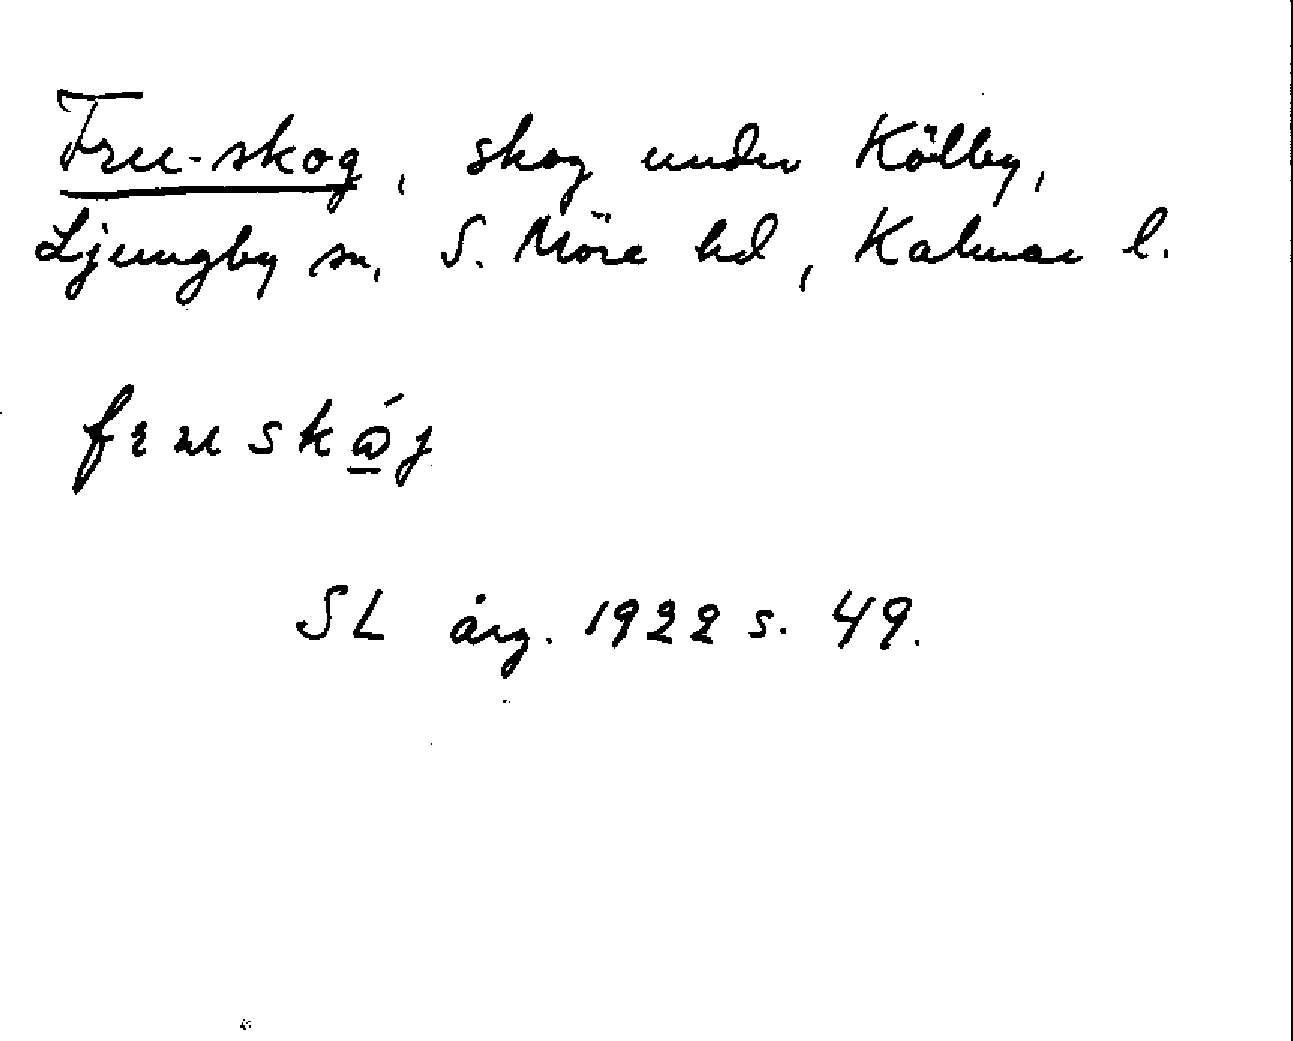 Fru-skog, skog under Kölby,
Ljungby sn, S. Möre hd, Kalmar l.
SL årg. 1922 s. 49.